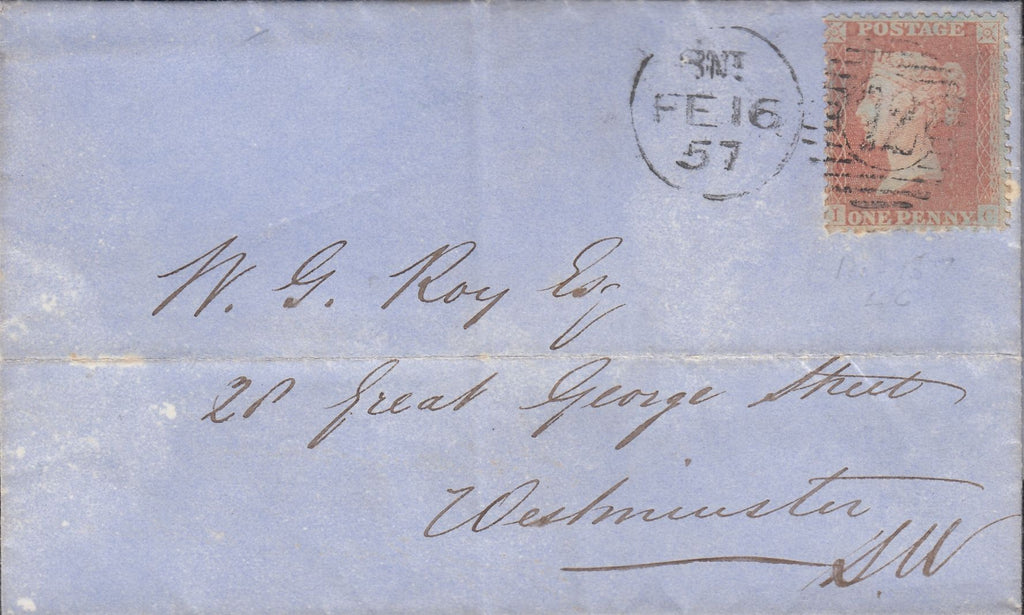 POSTAGE
3NT
FE 16
57
12
ONE PENNY
W. G. Roy Esq
28 Great George Street
Westminster
S.W